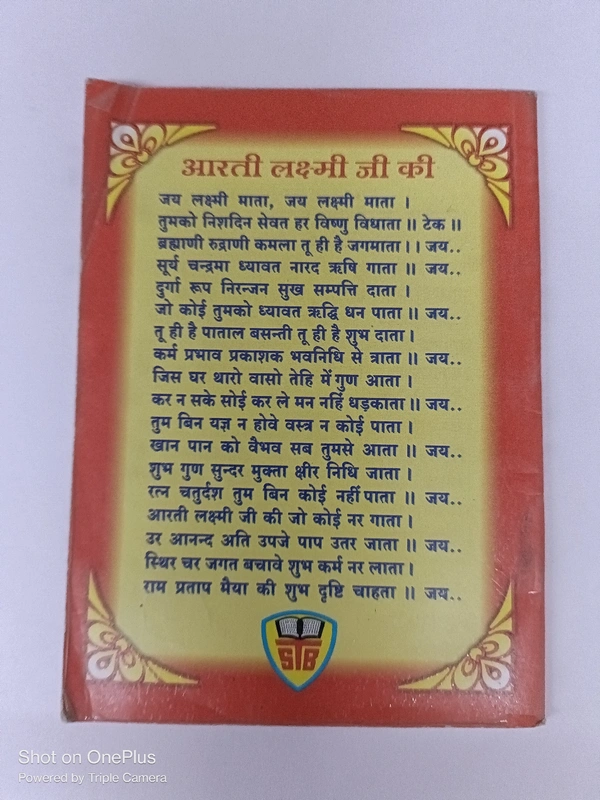 आरती लक्ष्मी जी की
जय लक्ष्मी माता, जय लक्ष्मी माता ।
तुमको निशदिन सेवत हर विष्णु विधाता ॥ टेक ॥
ब्रह्माणी रुद्राणी कमला तू ही है जगमाता।। जय..
सूर्य चन्द्रमा ध्यावत नारद ऋषि गाता ॥ जय..
दुर्गा रूप निरन्जन सुख सम्पत्ति दाता ।
जो कोई तुमको ध्यावत ऋद्धि धन पाता ॥ जय..
तू ही है पाताल बसन्ती तू ही है शुभ दाता।
कर्म प्रभाव प्रकाशक भवनिधि से त्राता ॥ जय..
जिस घर थारो वासो तेहि में गुण आता ।
कर न सके सोई कर ले मन नहिं धड़काता ॥ जय..
तुम बिन यज्ञ न होवे वस्त्र न कोई पाता ।
खान पान को वैभव सब तुमसे आता ॥ जय..
शुभ गुण सुन्दर मुक्ता क्षीर निधि जाता ।
रत्न चतुर्दश तुम बिन कोई नहीं पाता ॥ जय..
आरती लक्ष्मी जी की जो कोई नर गाता ।
उर आनन्द अति उपजे पाप उतर जाता ॥ जय..
स्थिर चर जगत बचावे शुभ कर्म नर लाता।
राम प्रताप मैया की शुभ दृष्टि चाहता ॥ जय..
STB
Shot on OnePlus
Powered by Triple Camera